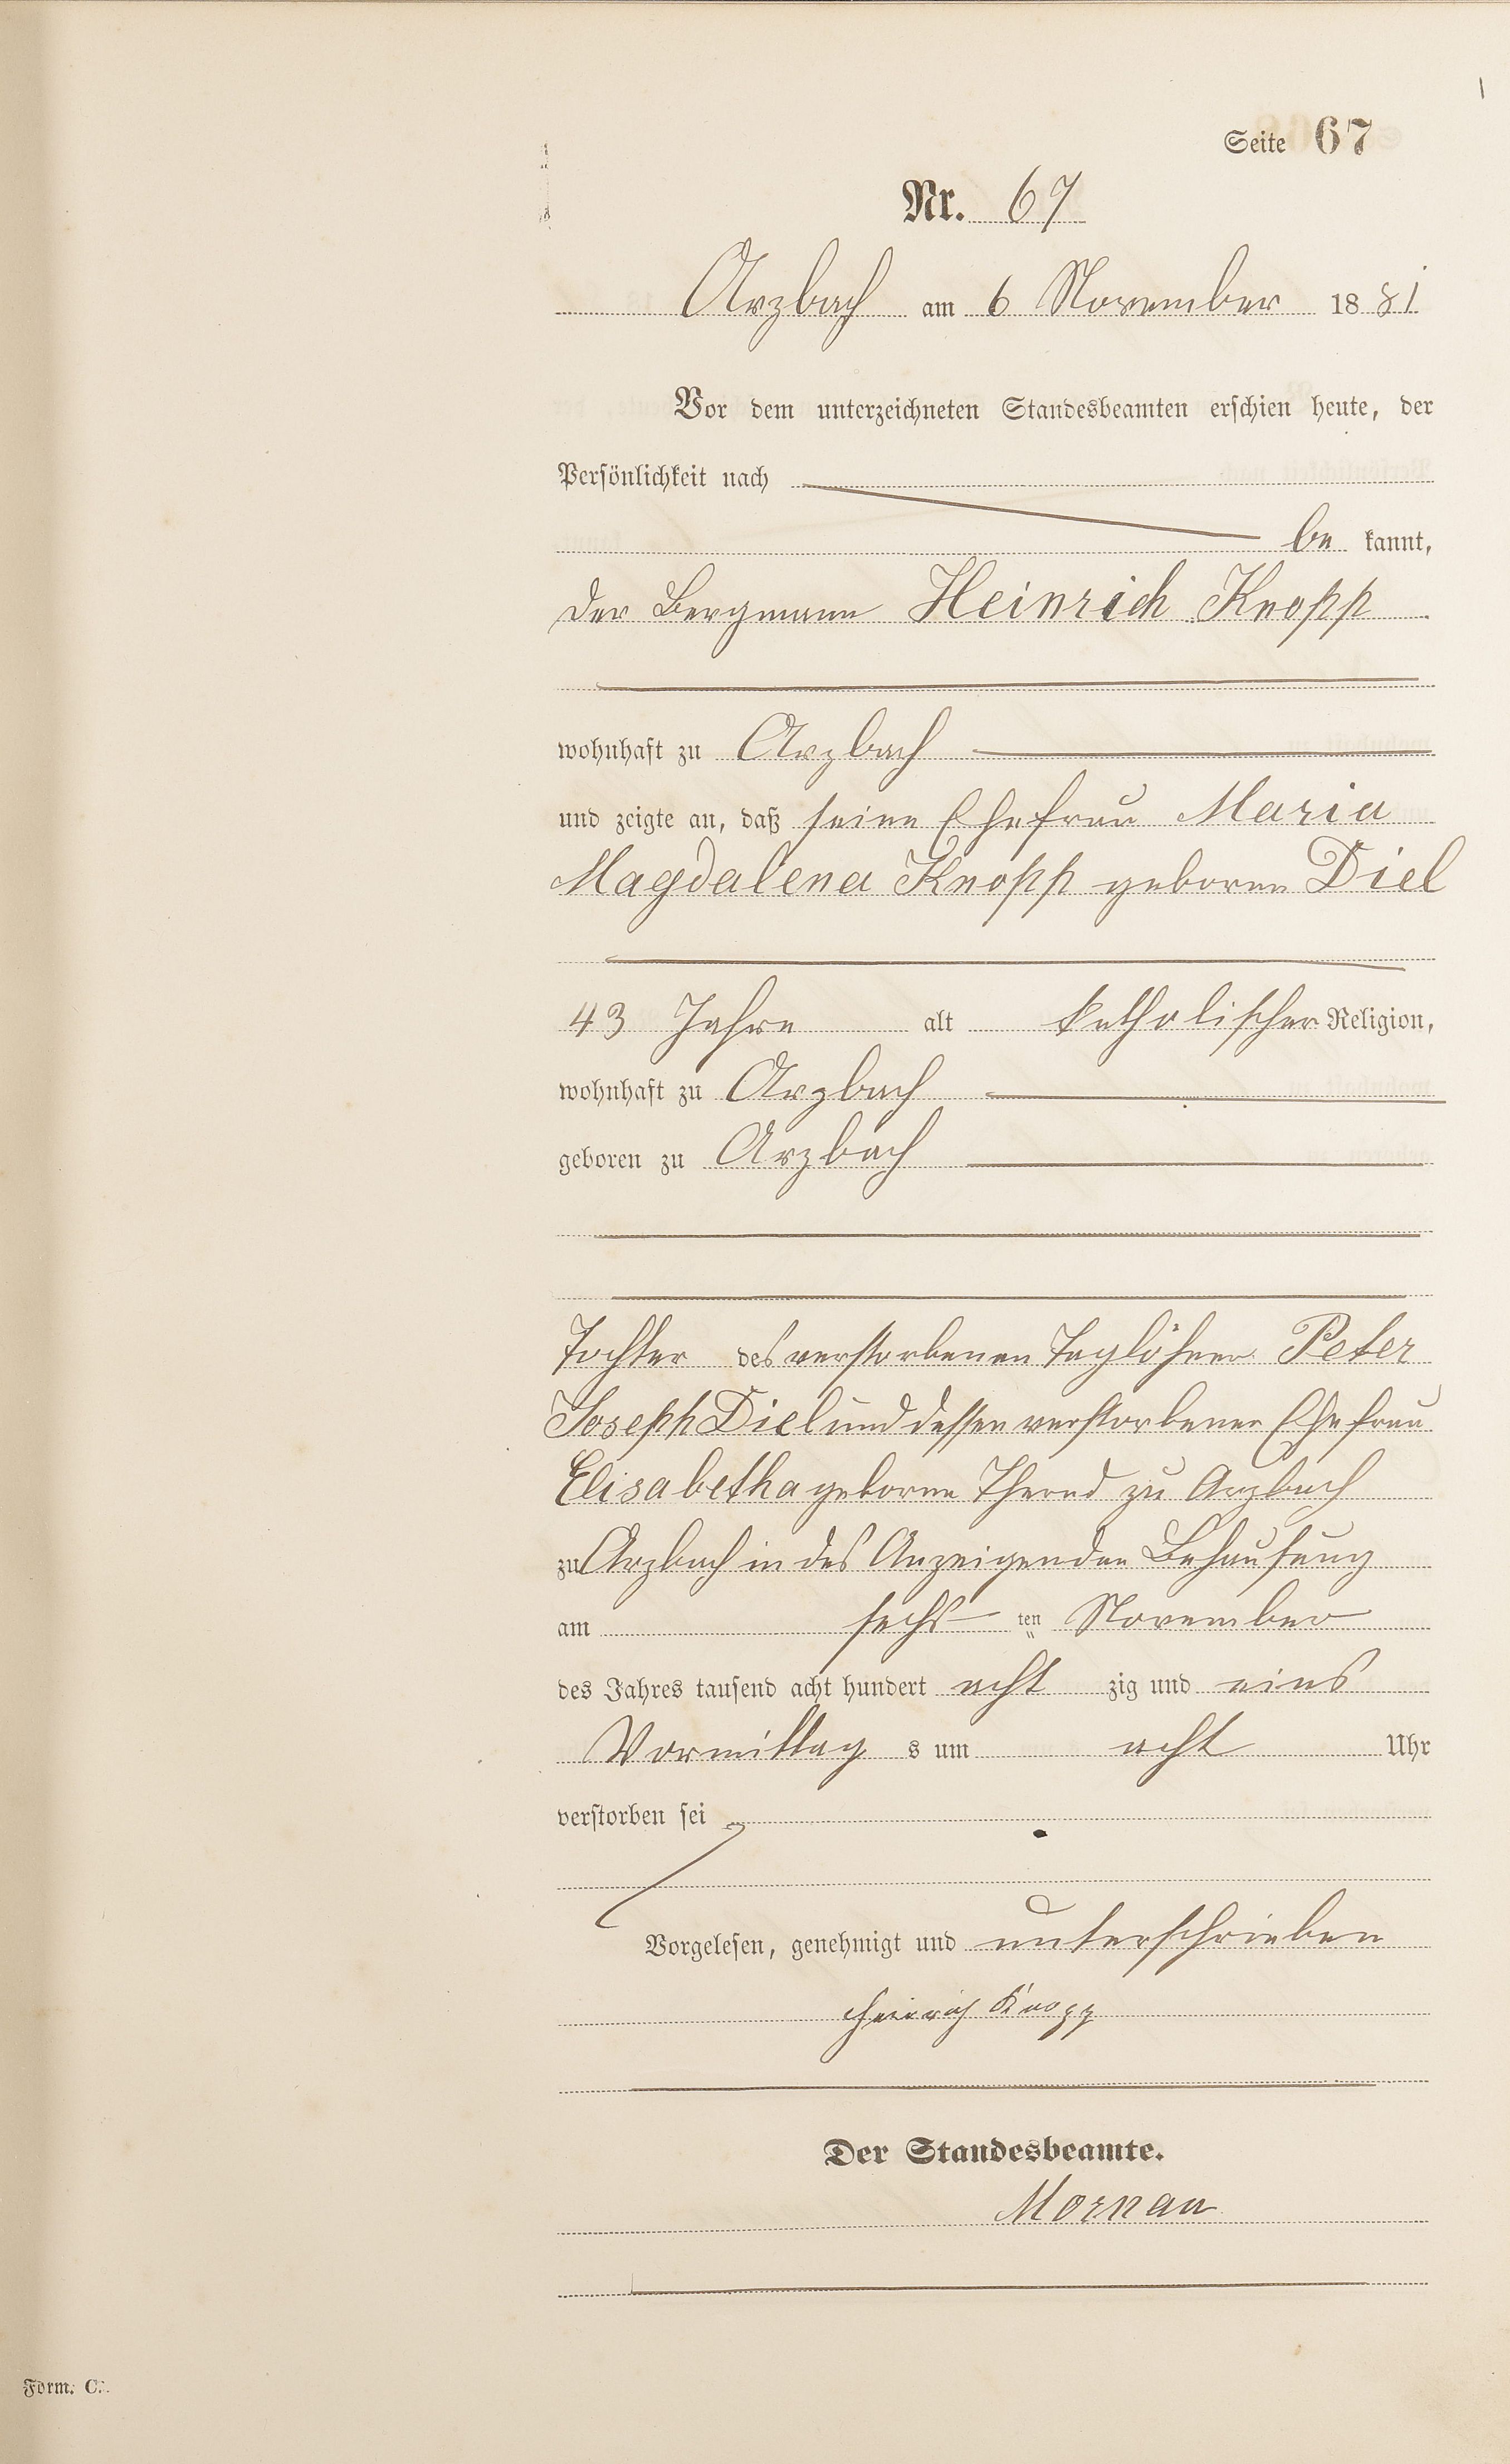 Seite 67
Nr. 67
Arzbach am 6 November 1881
Vor dem unterzeichneten Standesbeamten erschien heute, der
Persönlichkeit nach
be kannt,
der Bergmann Heinrich Knopp
wohnhaft zu Arzbach
und zeigte an, daß seine Ehefrau Maria
Magdalena Knopp geborne Diel
43 Jahre alt katholischer Religion,
wohnhaft zu Arzbach
geboren zu Arzbach
Tochter des verstorbenen Taglöhner Peter
Joseph Diel und dessen verstorbener Ehefrau
Elisabetha geborne zu Arzbach
zu Arzbach in des Anzeigenden Behausung
am sechs ten November
des Jahres tausend acht hundert acht zig und eins
Vormittag s um acht Uhr
verstorben sei
Vorgelesen, genehmigt und unterschrieben
Heinrich Knopp
Der Standesbeamte.
Mornau
Form. C.